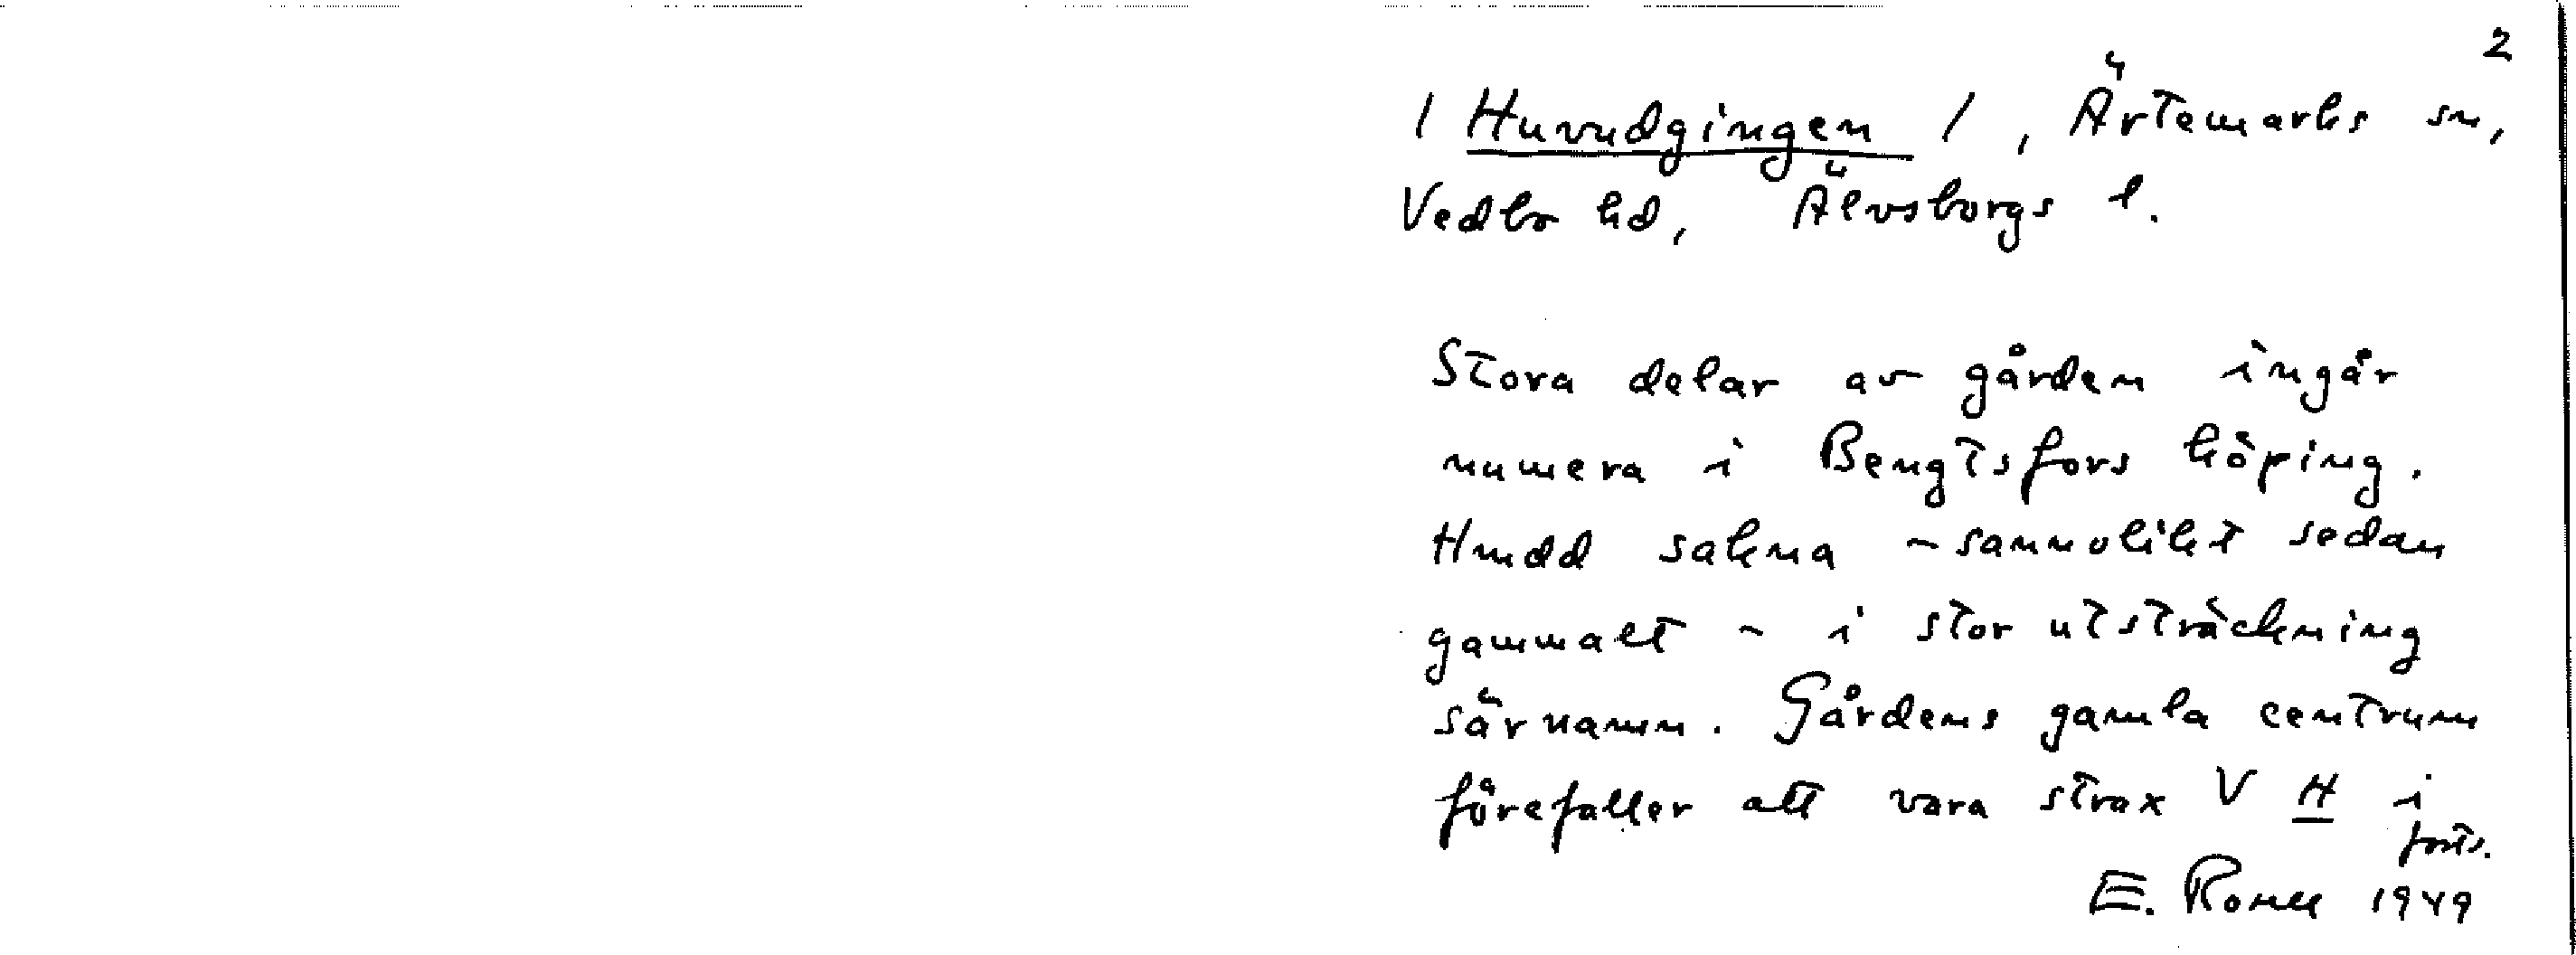 2
/ Huvudgingen /, Ärtemarks sn,
Vedbo hd, Älvsborgs l.
Stora delar av gården ingår
numera i Bengtsfors köping.
Hmdd sakna - sannolikt sedan
gammalt - i stor utsträckning
särnamn. Gårdens gamla centrum
förefaller att vara strax V H i
forts.
E. 1949